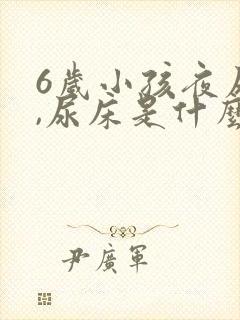 6歲小孩夜尿
,尿床是什麼
尹廣軍